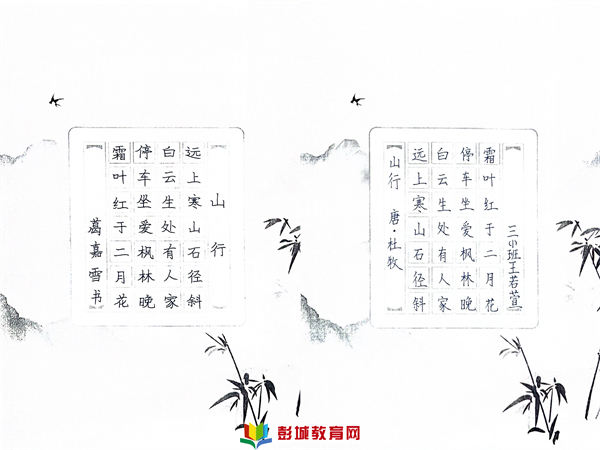 山行
远上寒山石径斜
白云生处有人家
停车坐爱枫林晚
霜叶红于二月花
葛嘉雪书
山行 唐·杜牧
远上寒山石径斜
白云生处有人家
停车坐爱枫林晚
霜叶红于二月花
三班王若萱
彭城教育网